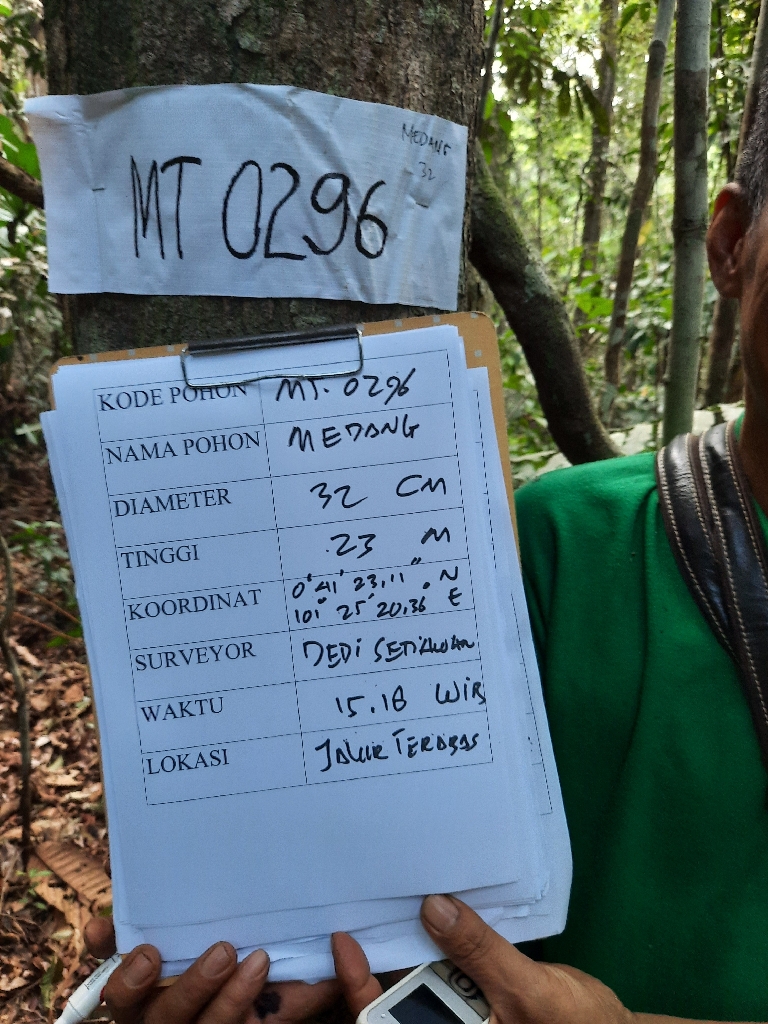 MEDANG
32
MT 0296
KODE POHON MT. 0296
NAMA POHON MEDANG
DIAMETER 32 CM
TINGGI 23 M
KOORDINAT 0° 41' 23,11" . N
101° 25' 20,36 E
SURVEYOR DEDI SETIAWAN
WAKTU 15.18 WIB
LOKASI JALUR TERABAS